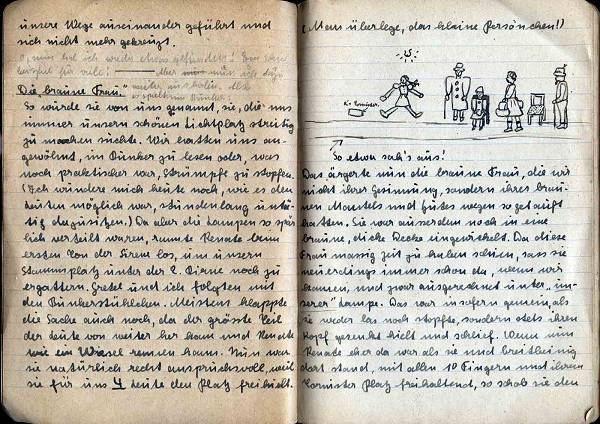 unsere Wege auseinander geführt und
sich nicht mehr gekreuzt.
nun hab ich wieder etwas gefunden! Ein
für viele! Aber nun muss ich dazu
weiter ausholen. Also
Die „braune Frau"
Bunker!
So wurde sie von uns genannt, sie, die uns
immer unsern schönen Lichtplatz streitig
zu machen suchte. Wir hatten uns an-
gewöhnt, im Bunker zu lesen oder, was
noch praktischer war, Strümpfe zu stopfen.
(Ich wundere mich heute noch, wie es den
Leuten möglich war, stundenlang untä-
tig dazusitzen.) Da aber die Lampen so spär-
lich verteilt waren, rannte Renate beim
ersten Ton der Sirene los, um unsern
Stammplatz unter der 2. Birne noch zu
ergattern. Gretel und ich folgten mit
den Bunkerstühlchen. Meistens klappte
die Sache auch noch, da der grösste Teil
der Leute von weiter her kam und Renate
wie ein Wiesel rennen kann. Nun war
sie natürlich recht anspruchsvoll, weil
sie für uns 4 Leute den Platz freihielt.
(Man überlege, das kleine Persönchen!)
K. Tornister
So etwa sah's aus!
Das ärgerte nun die braune Frau, die wir
nicht ihrer Gesinnung, sondern ihres brau-
nen Mantels und Hutes wegen so getauft
hatten. Sie war ausserdem noch in eine
braune, dicke Decke eingewickelt. Da diese
Frau massig Zeit zu haben schien, sass sie
neuerdings immer schon da, wenn wir
kamen, und zwar ausgerechnet unter „un-
serer" Lampe. Das war insofern gemein, als
sie weder las noch stopfte, sondern stets ihren
Kopf gesenkt hielt und schlief. Wenn nun
Renate eher da war als sie und breitbeinig
dort stand, mit allen 10 Fingern und ihrem
Tornister Platz freihaltend, so schob sie den